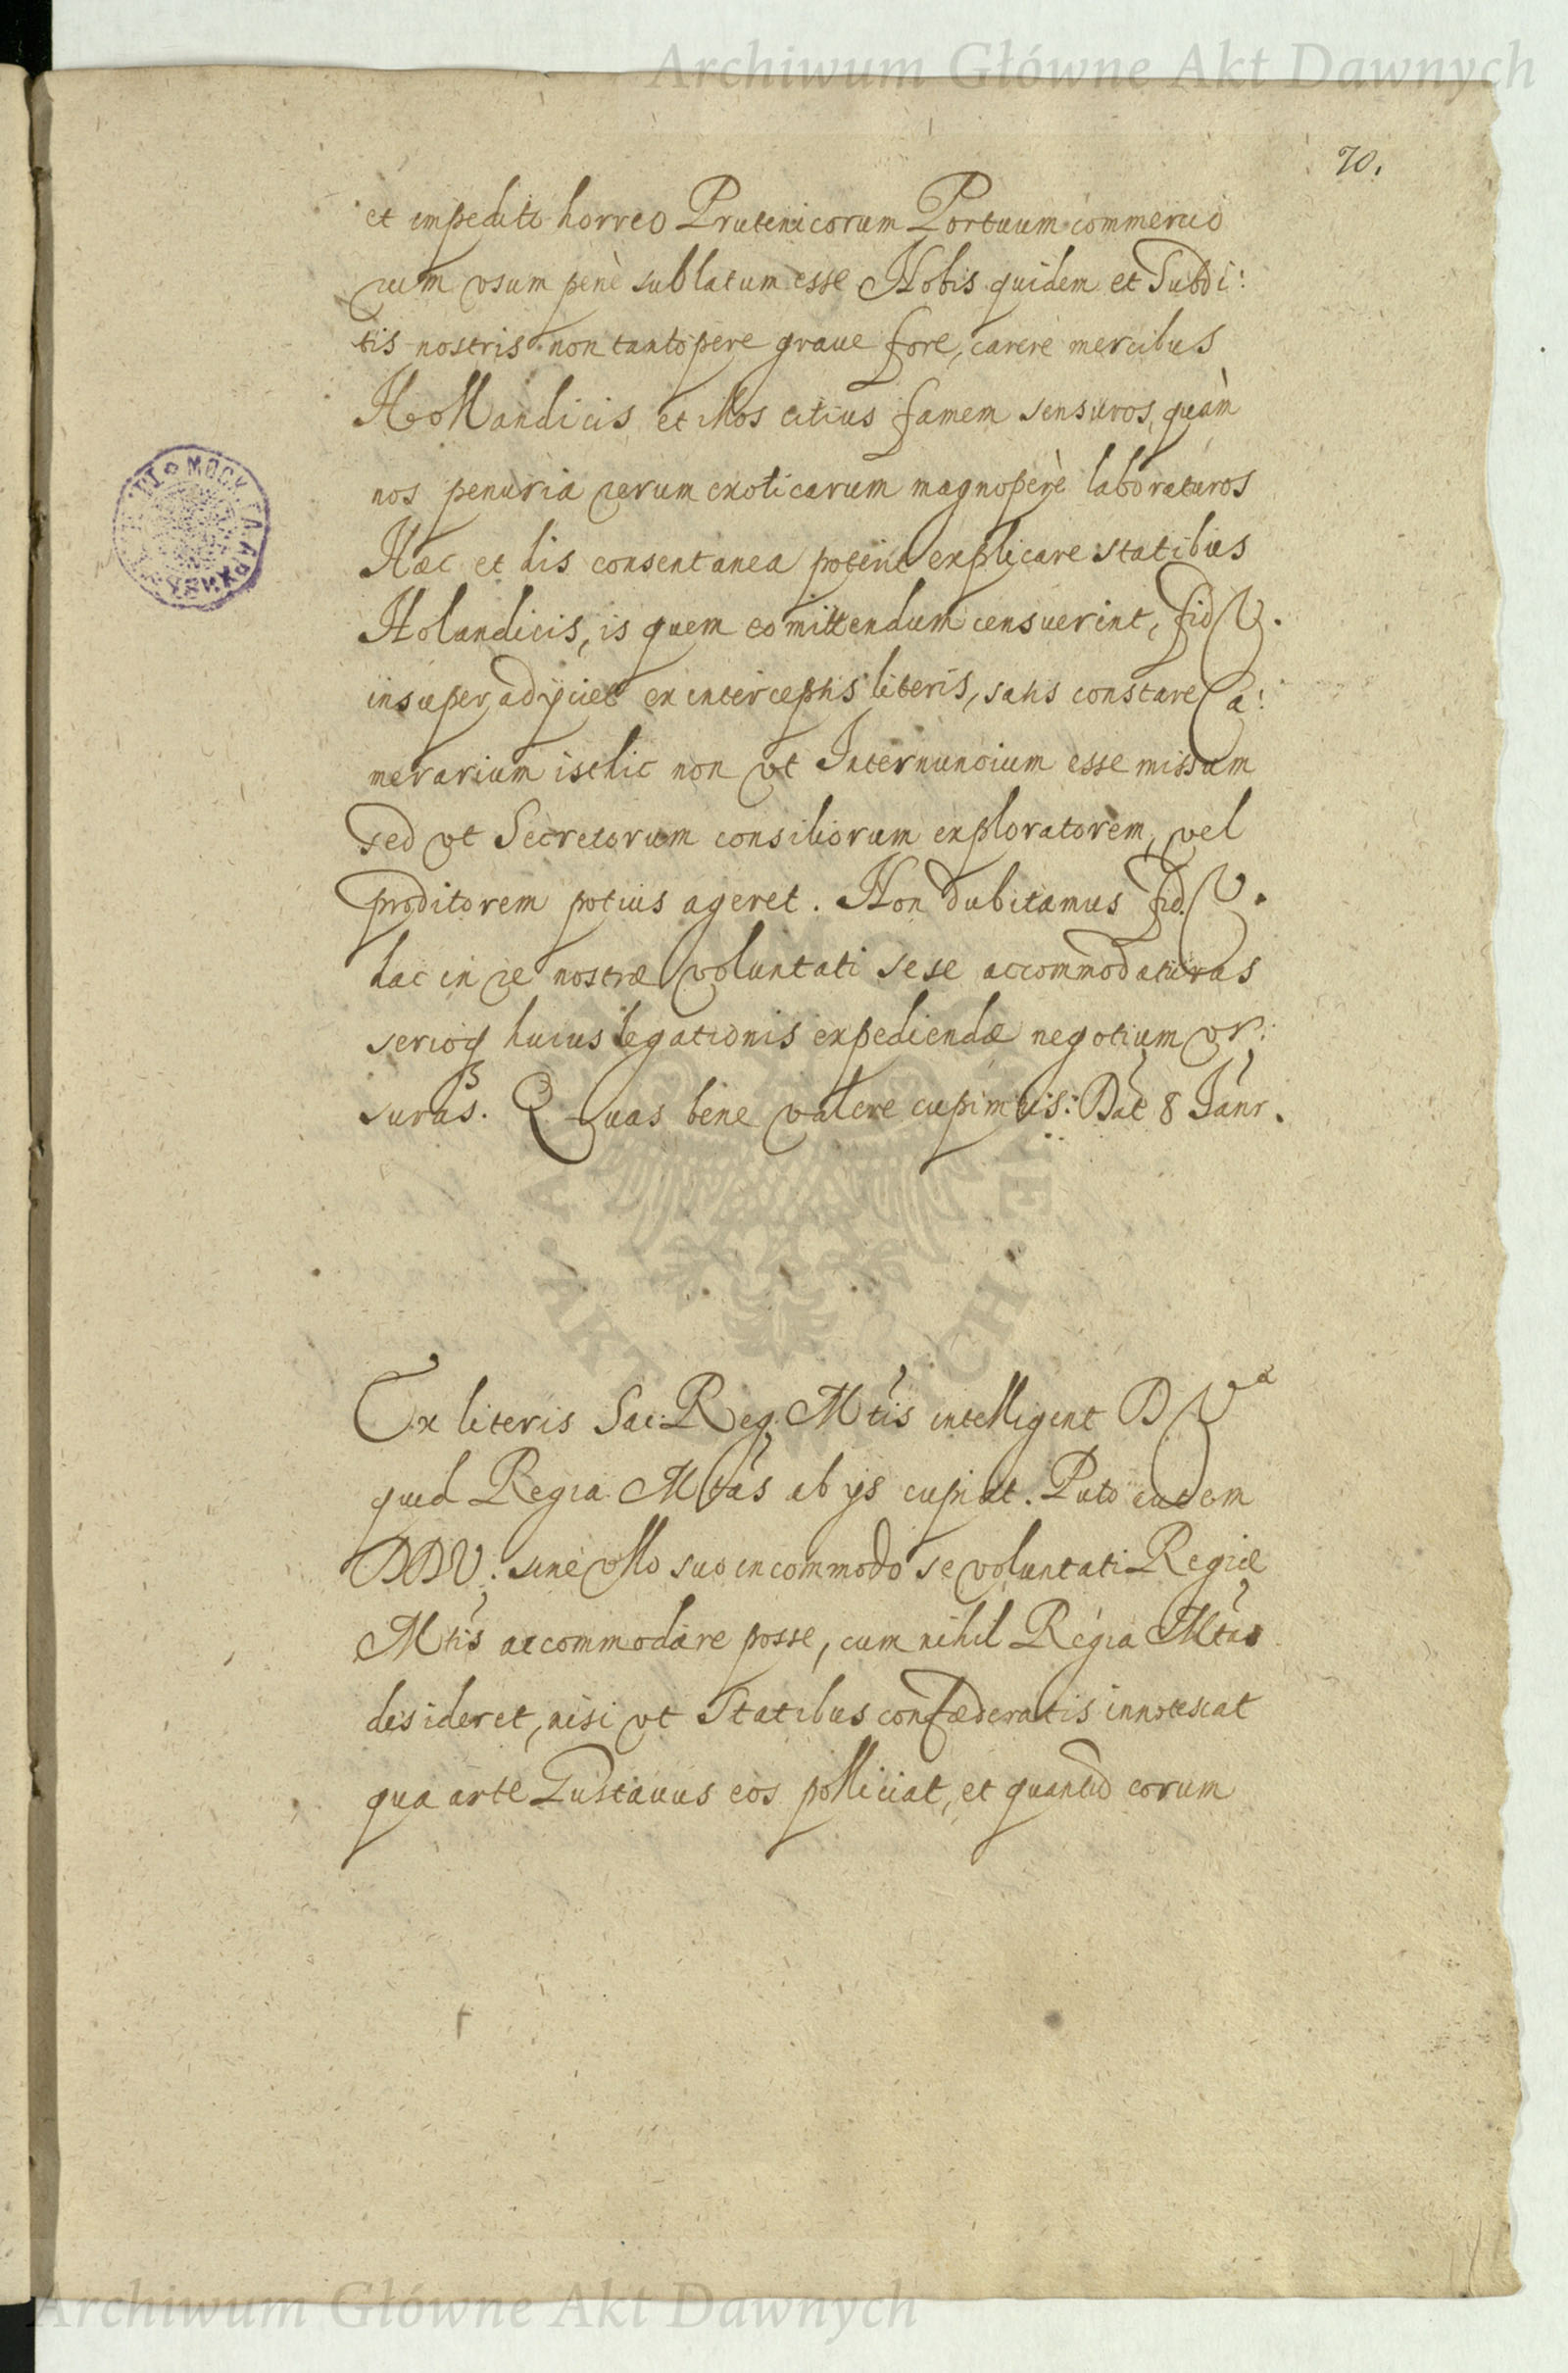 Archiwum Główne Akt Dawnych
70.
et impedito horreo Prutenicorum Portuum commercio
cum vsum penè sublatum esse Nobis quidem et Subdi:
tis nostris non tantopere graue fore, carere mercibus
Hollandicis et illos citius famem sensuros, quàm
nos penuria rerum exoticarum magnopere laboraturos
Haec et his consentanea poterit explicare statibus
Holandicis, is quem eo mittendum censuerint, fid V.
insuper adijciet ex interceptis literis, satis constare Ca:
merarium isthic non vt Internuncium esse missum
sed vt Secretorum consiliorum exploratorem, vel
proditorem potius ageret. Non dubitamus fid. V.
hac in re nostræ voluntati sese accommodaturas
serioq huius legationis expediendæ negotium vr:
suras. Quas bene valere cupimus: Dat 8 Janr.
Ex literis Sac: Reg. Mtis intelligent D Vᵃ
quid Regia Mtas ab ijs cupiat. Puto eutem
DDV: sine vllo suo incommodo se voluntati Regiæ
Mtis accommodare posse, cum nihil Regia Mtas
desideret, nisi vt Statibus confœderatis innotescat
qua arte Gustauus eos polliciat, et quantũ eorum
Archiwum Główne Akt Dawnych